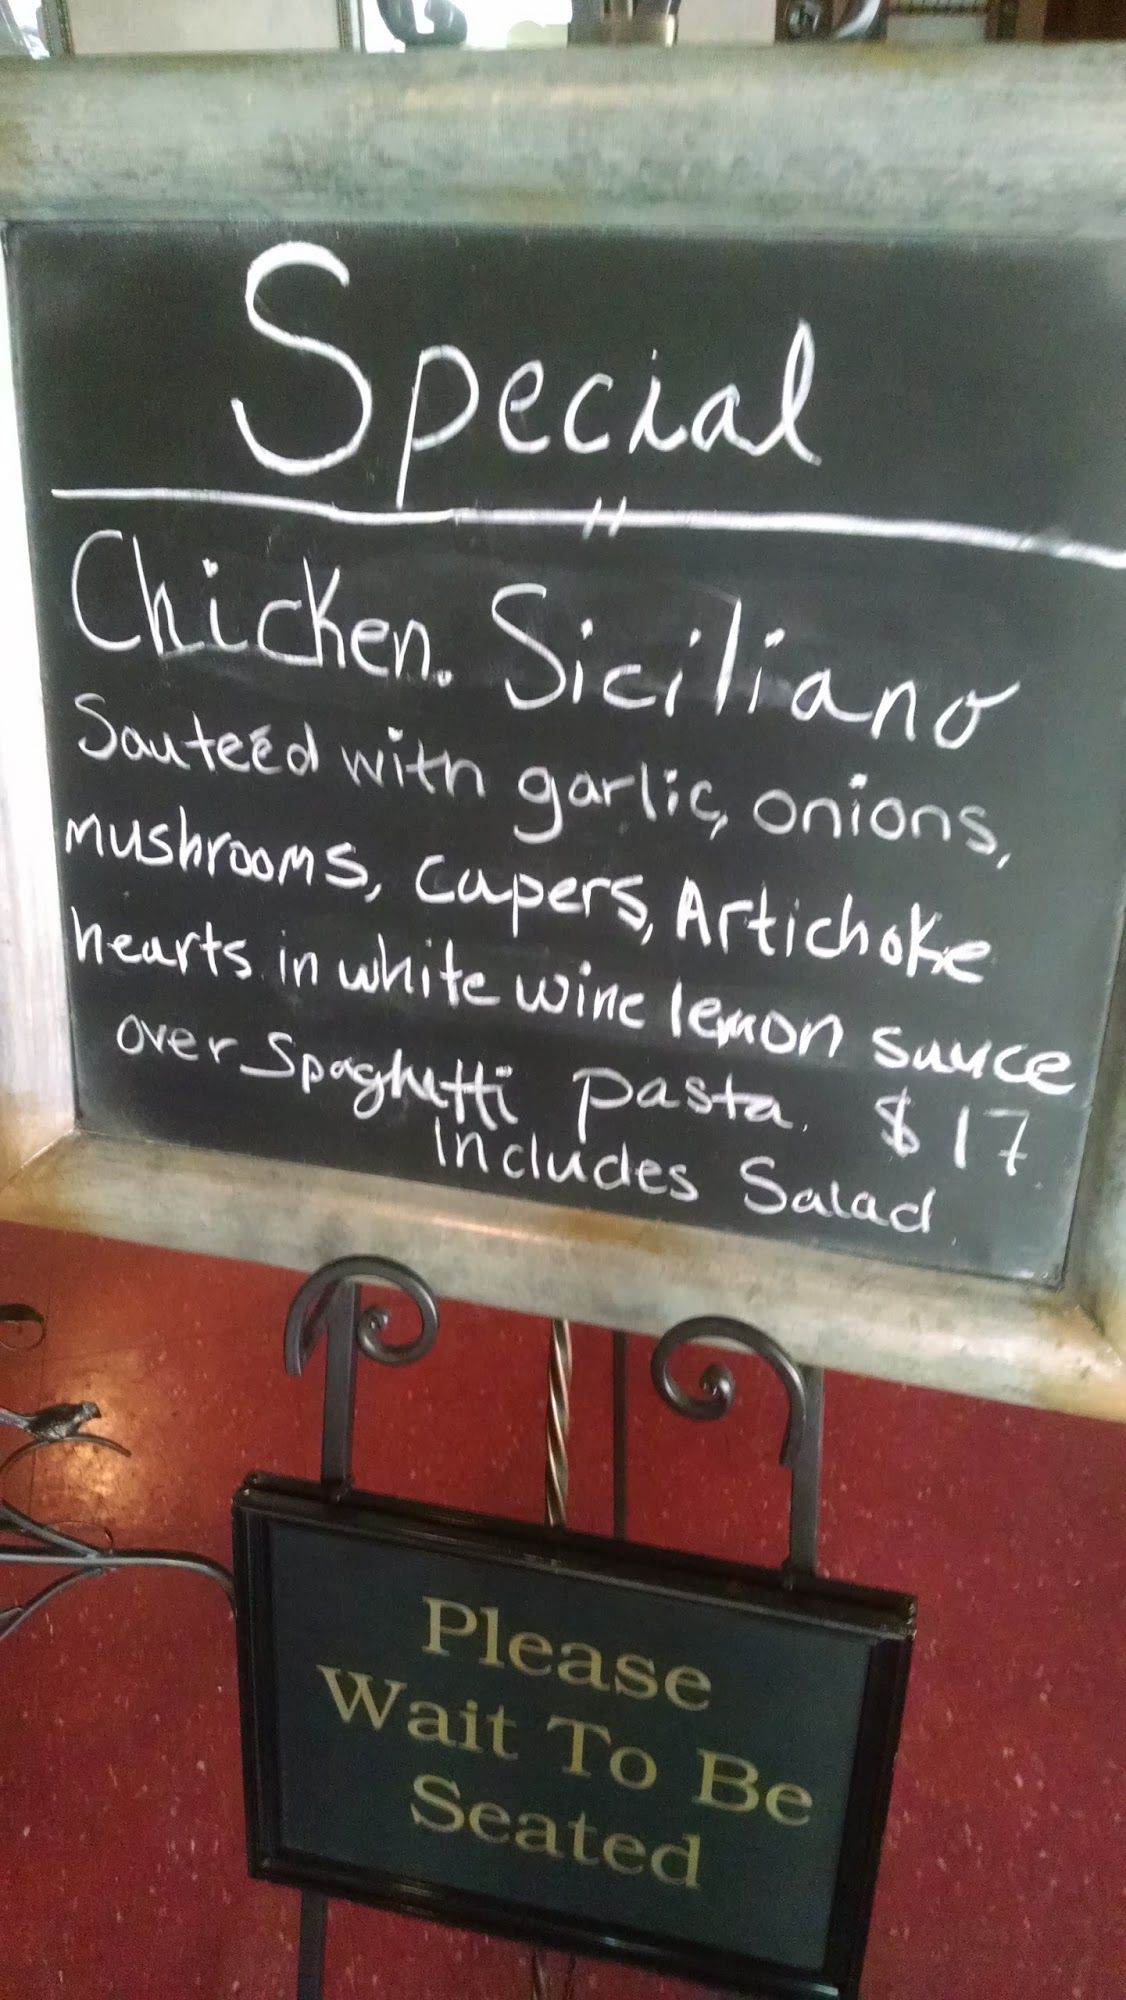 Special
Chicken. Siciliano
Sauteéd with garlic, onions,
mushrooms, capers, Artichoke
hearts in white wine lemon sauce
over Spaghetti pasta. $17
includes Salad
Please
Wait To Be
Seated